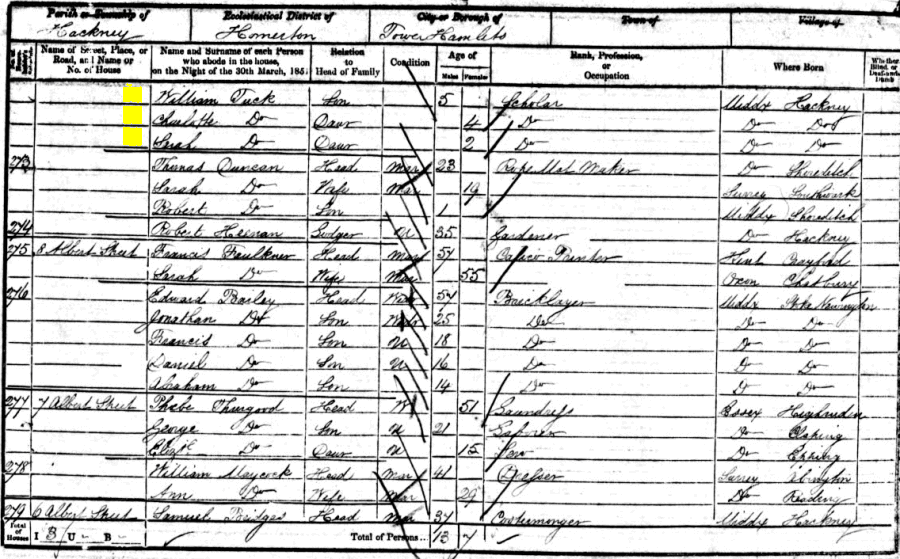 Parish or Township of Ecclesiastical District of City or Borough of Town of Village of
Hackney Homerton Tower Hamlets
Name of Street, Place, or Road, and Name or No. of House Name and Surname of each Person who abode in the house, on the Night of the 30th March, 1851 Relation to Head of Family Condition Age of Males Females Rank, Profession, or Occupation Where Born Whether Blind, or Deaf-and-Dumb
William Tuck Son 5 Scholar Middx Hackney
Charlotte Do Daur 4 Do Do Do
Sarah Do Daur 2 Do Do Do
273 Thomas Duncan Head Mar 23 Rope Mat Maker Do Shoreditch
Sarah Do Wife Mar 19 Surrey Southwark
Robert Do Son 1 Middx Shoreditch
274 Robert Heenan Lodger U 35 Gardener Do Hackney
275 8 Albert Street Francis Faulkner Head Mar 57 Calico Printer Kent Crayford
Sarah Do Wife Mar 55 Oxon
276 Edward Bailey Head 54 Bricklayer Middx Stoke Newington
Jonathan Do Son 25 Do Do Do
Francis Do Son U 18 Do Do Do
Daniel Do Son U 16 Do Do Do
Abraham Do Son 14 Do Do Do
277 7 Albert Street Phebe Thurgood Head W 51 Laundress Essex
George Do Son U 21 Labourer Do
Elizth Do Daur U 12 Do Epping
278 William Maycock Head Mar 41 Surrey
Ann Do Wife Mar 29 Do Reading
279 6 Albert Street Samuel Bridges Head Mar 37 Costermonger Middx Hackney
Total of Houses I 3 U - B - Total of Persons... 13 7